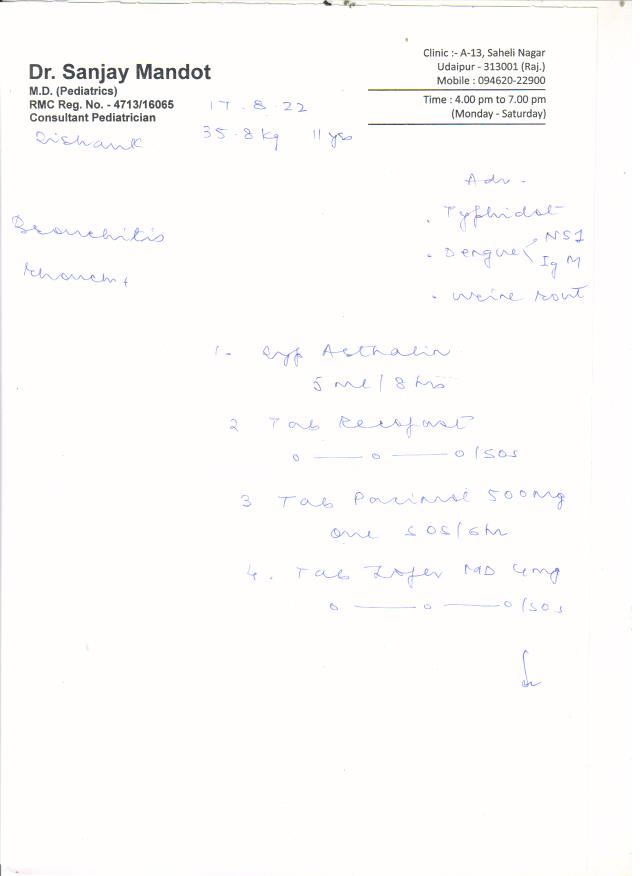 Dr. Sanjay Mandot
M.D. (Pediatrics)
RMC Reg. No. - 4713/16065
Consultant Pediatrician
Clinic :- A-13, Saheli Nagar
Udaipur - 313001 (Raj.)
Mobile : 094620-22900
Time : 4.00 pm to 7.00 pm
(Monday - Saturday)
17.8.22
Rishank 35.8 kg 11 yrs
Adv -
. Typhidot
. Dengue NS1
IgM
. urine rout
Bronchitis
Rhonchi +
1- Syp Asthalin
5 ml / 8 hrs
2 Tab
0 — 0 — 0 / SOS
3 Tab Pacimol 500mg
one SOS / 6hr
4. Tab Zofer MD 4mg
0 — 0 — 0 / SOS